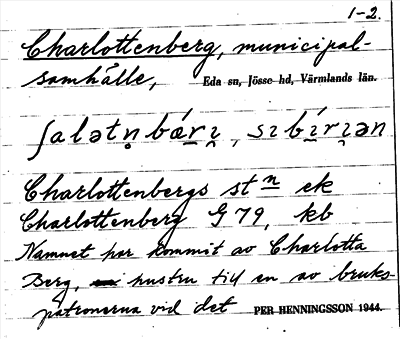 1-2.
Charlottenberg, municipal-
samhälle, Eda sn, Jösse hd, Värmlands län.
Charlottenbergs stn ek
Charlottenberg G 79, kb
Namnet har kommit av Charlotta
Berg, hustru till en av bruks-
patronerna vid det PER HENNINGSSON 1944.